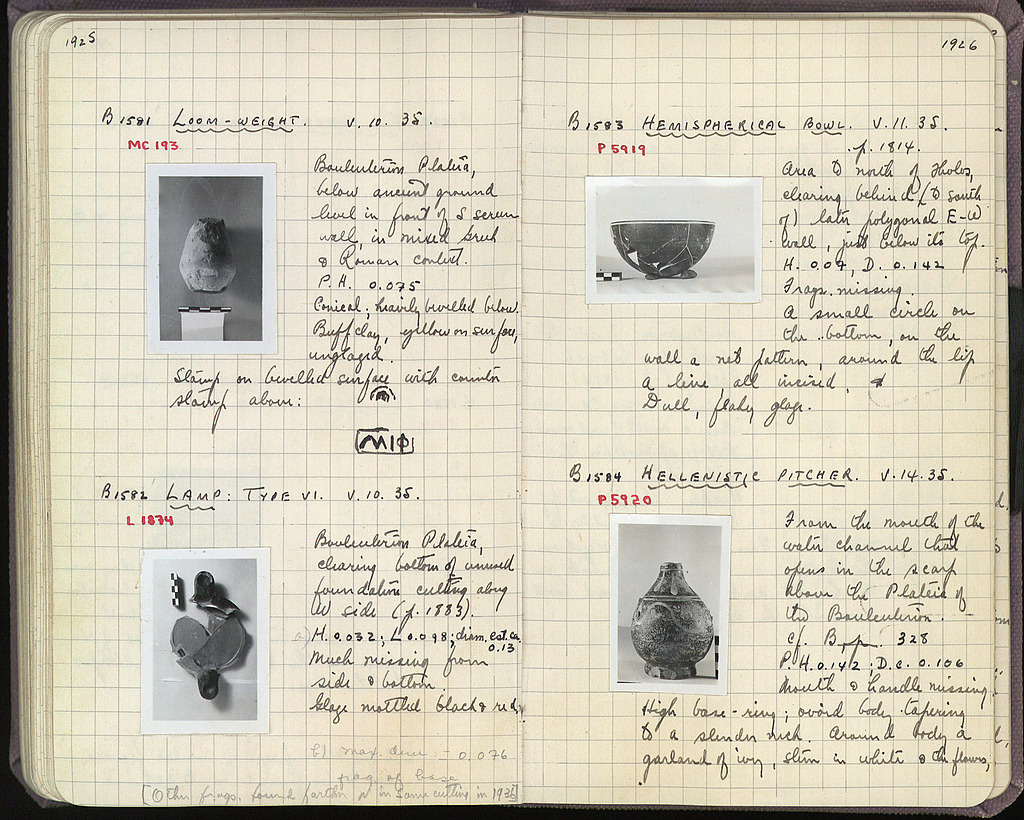 1925
B1581 LOOM-WEIGHT. V. 10. 35.
MC 193
Bouleuterion Plateia,
below ancient ground
level in front of S screen
wall, in mixed Greek
& Roman context.
P. H. 0.075
Conical; heavily bevelled below.
Buff clay, yellow on surface,
unglazed.
Stamp on bevelled surface with counter
stamp above:
ΜΙΦ
B1582 LAMP: TYPE VI. V. 10. 35.
L 1874
Bouleuterion Plateia,
clearing bottom of unused
foundation cutting along
W side (p. 1883).
a) H. 0.032; L 0.098; diam. est. ca.
0.13
Much missing from
side & bottom
Glaze mottled black & red.
b) max. dim. - 0.076
frag of base
[Other frags. found farther in same cutting in 1935]
1926
B1583 HEMISPHERICAL BOWL. V. 11. 35.
P 5919
p. 1814.
Area to north of Tholos,
clearing behind (to south
of) later polygonal E-W
wall, just below its top.
H. 0.07, D. 0.142
Frags. missing.
A small circle on
the bottom, on the
wall a net pattern, around the lip
a line, all incised.
Dull, flaky glaze.
B1584 HELLENISTIC PITCHER. V. 14. 35.
P 5920
From the mouth of the
water channel that
opens in the scarp
above the Plateia of
the Bouleuterion.
cf. B, p. 328
P. H. 0.142; D. c. 0.106
Mouth & handle missing.
High base-ring; ovoid body tapering
to a slender neck. Around body a
garland of ivy, stem in white & the flowers,